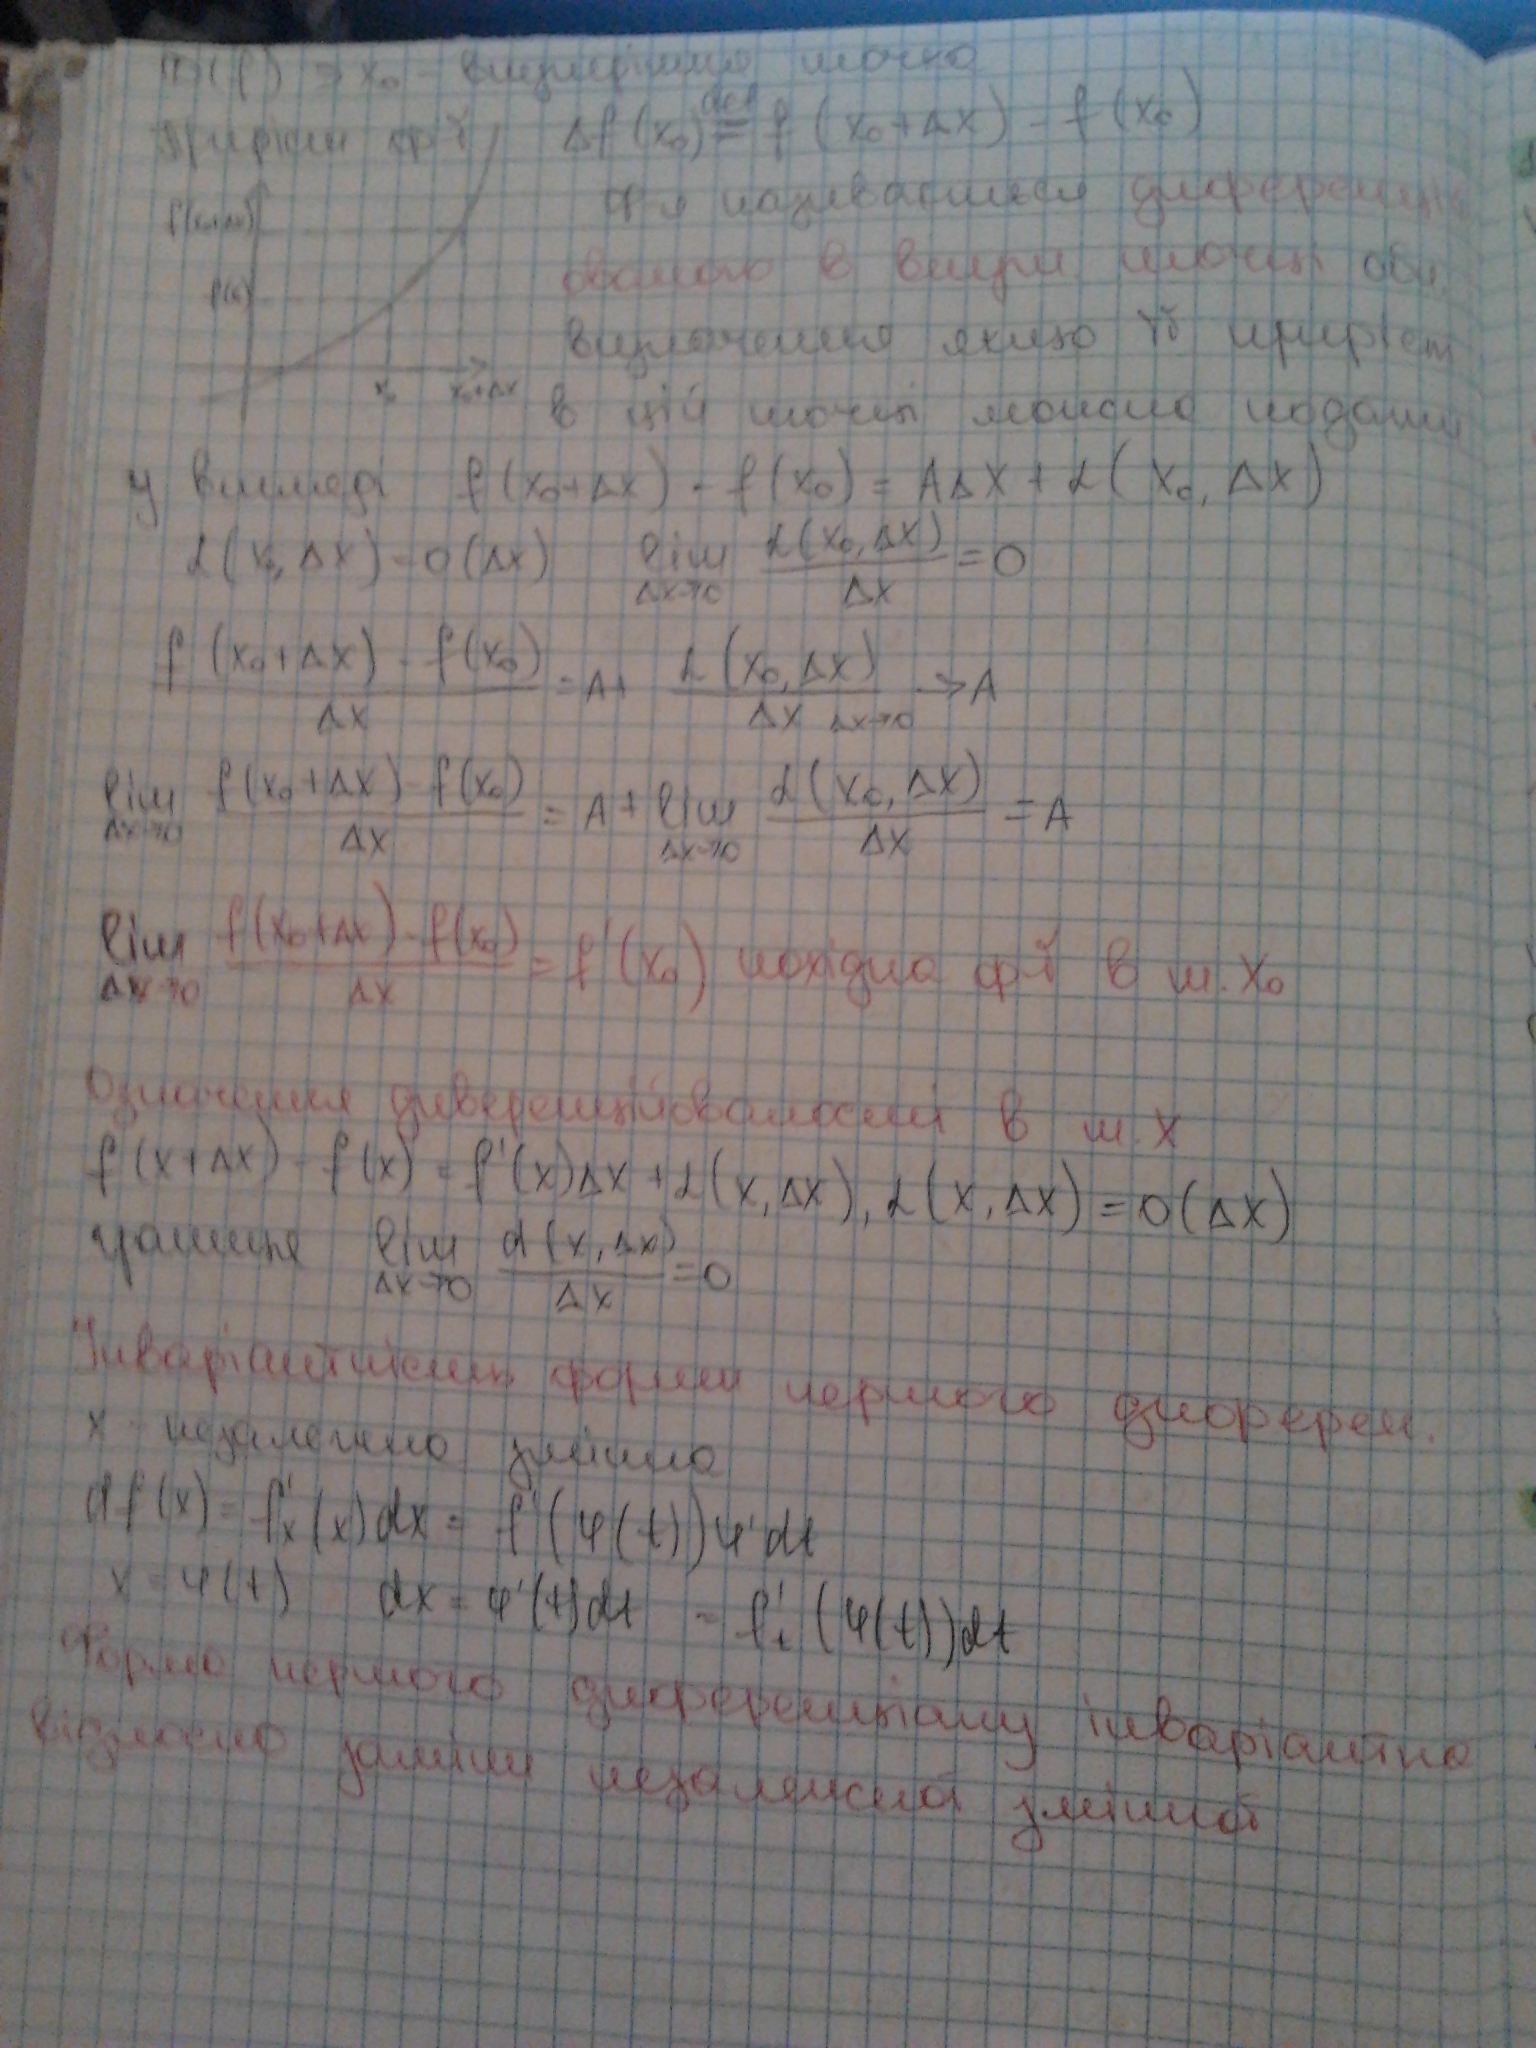 D(f) ∋ x₀ - внутрішня точка
Приріст ф-ї Δf(x₀) def= f(x₀+Δx) - f(x₀)
f(x₀+Δx)
f(x₀)
x₀ x₀+Δx
Ф-я називається диференцій
ованою в внутр точці обл.
визначення якщо її приріст
в цій точці можна подати
у вигляді f(x₀+Δx) - f(x₀) = AΔx + α(x₀, Δx)
α(x₀, Δx) - o(Δx) lim Δx→0 α(x₀, Δx)/Δx = 0
(f(x₀+Δx) - f(x₀))/Δx = A + α(x₀, Δx)/Δx → A Δx→0
lim Δx→0 (f(x₀+Δx) - f(x₀))/Δx = A + lim Δx→0 α(x₀, Δx)/Δx = A
lim Δx→0 (f(x₀+Δx) - f(x₀))/Δx = f'(x₀) похідна ф-ї в т. x₀
Означення диверенційованості в т. x
f(x+Δx) - f(x) = f'(x)Δx + α(x, Δx), α(x, Δx) = o(Δx)
lim Δx→0 α(x, Δx)/Δx = 0
Інваріантність форми першого диферен.
x - незалежна змінна
df(x) = f'ₓ(x)dx = f'(φ(t))φ'dt
x = φ(t) dx = φ'(t)dt = f'ₜ(φ(t))dt
Форма першого диференціалу інваріантна
відносно заміни незалежної змінної